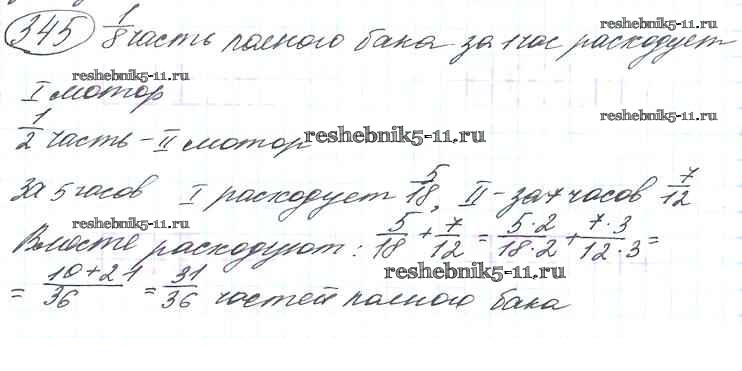 reshebnik5-11.ru
345 1/8 часть полного бака за 1 час расходует
reshebnik5-11.ru
I мотор
reshebnik5-11.ru
1/2 часть – II мотор reshebnik5-11.ru
За 5 часов I расходует 5/18, II – за 7 часов 7/12
reshebnik5-11.ru reshebnik5-11.ru
Вместе расходуют: 5/18 + 7/12 = 5·2/18·2 + 7·3/12·3 =
reshebnik5-11.ru
= 10+21/36 = 31/36 частей полного бака